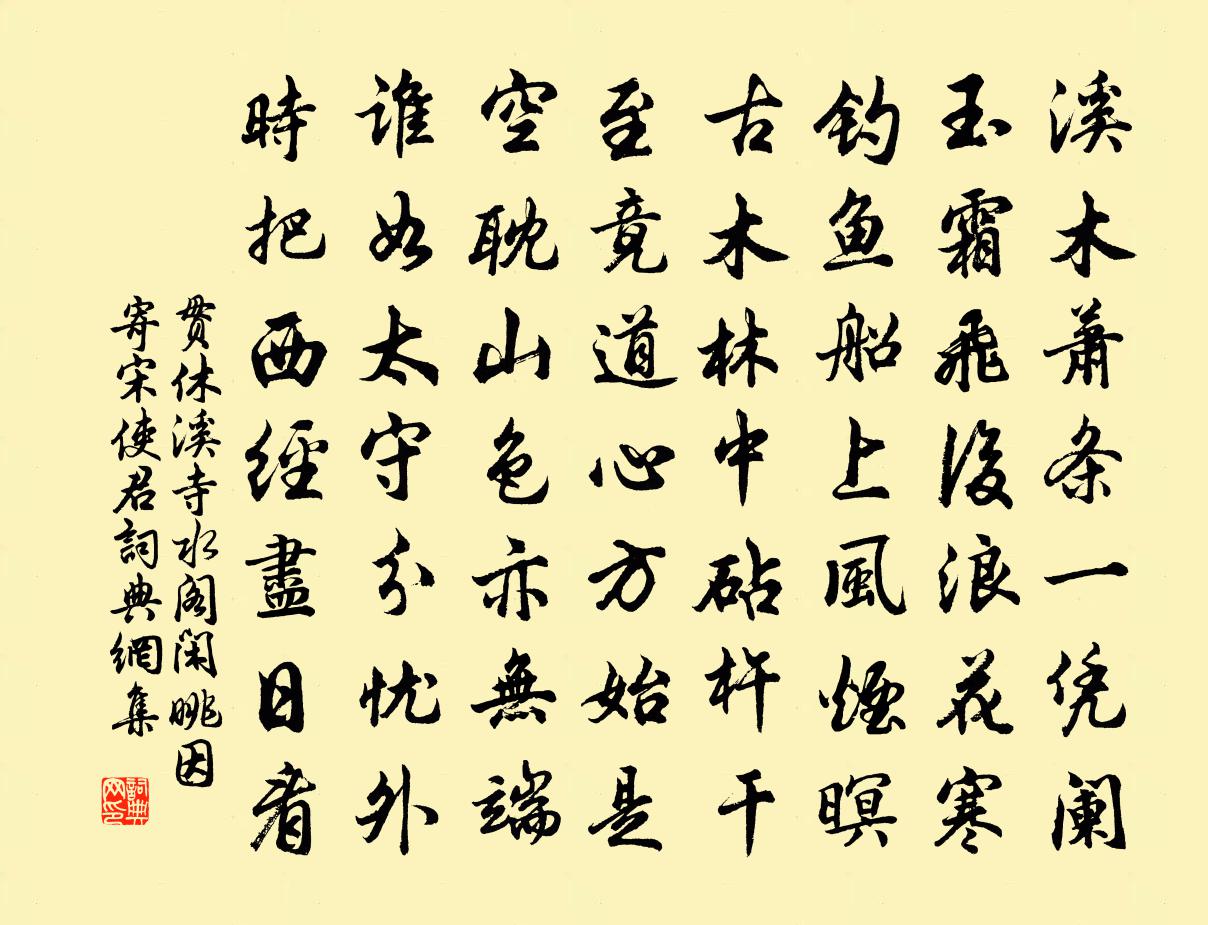 溪木萧条一凭阑
玉霜飛後浪花寒
钓鱼船上風煙暝
古木林中砧杵干
至竟道心方始是
空耽山色亦無端
谁如太守分忧外
時把西經盡日看
贯休溪寺水阁闲眺因
寄宋使君詞典網集
詞典
网印